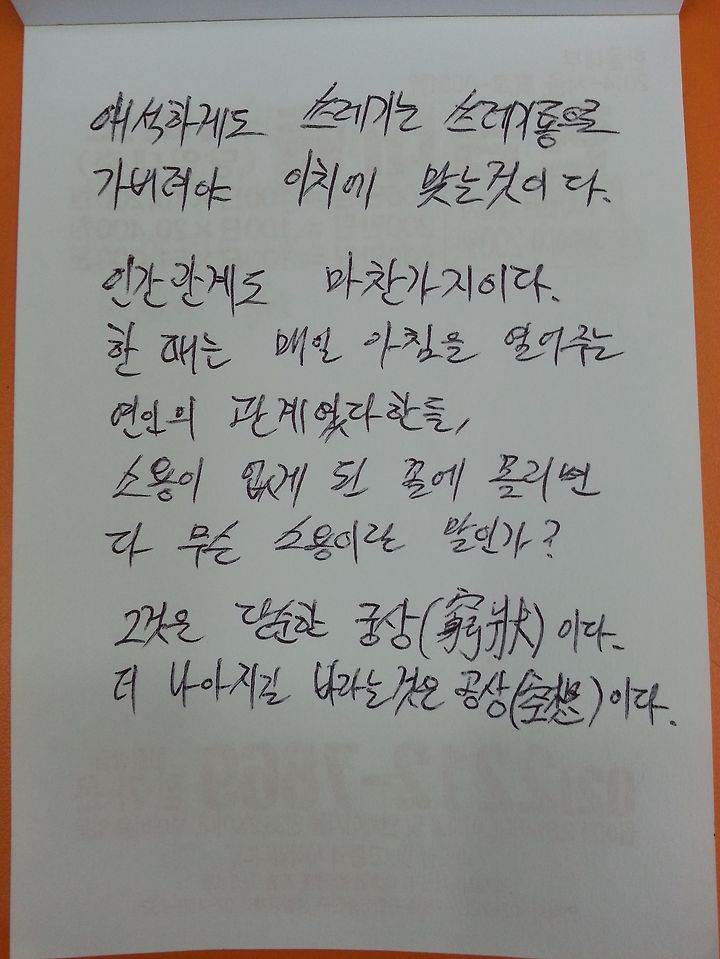 애석하게도 쓰레기는 쓰레기통으로
가버려야 이치에 맞는것이다.
인간관계도 마찬가지이다.
한 때는 매일 아침을 열어주는
연인의 관계였다한들,
소용이 없게 된 꼴에 몰리면
다 무슨 소용이란 말인가?
그것은 단순한 궁상(窮狀)이다.
더 나아지길 바라는것은 공상(空想)이다.
02)2212-7869